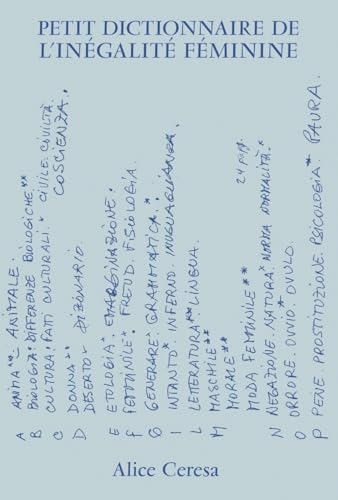 PETIT DICTIONNAIRE DE
L'INÉGALITÉ FÉMININE
A ANIMA** ANIMALE.
B BIOLOGIA. DIFFERENZE BIOLOGICHE**
C CULTURA. FATTI CULTURALI.* CIVILE. CIVILTÀ.
COSCIENZA.
D DONNA**
DESERTO* DIZIONARIO.
E ETOLOGIA* EMARGINAZIONE.
F FEMMINILE* FREUD. FISIOLOGIA.
G GENERARE* GRAMMATICA.**
I INTANTO* INFERNO. INUGUAGLIANZA.
L LETTERATURA** LINGUA.
M MASCHILE**
MORALE**
MODA FEMMINILE** 24 pp.
N NEGAZIONE. NATURA* NORMA NORMALITÀ.*
O ORRORE. OVVIO* OVULO.
P PENE. PROSTITUZIONE. PSICOLOGIA* PAURA.
Alice Ceresa